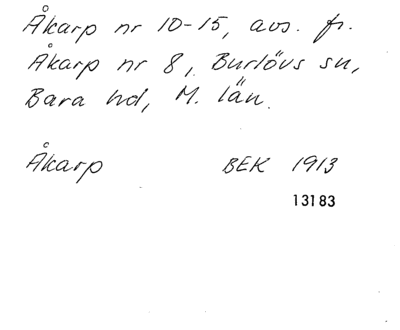 Åkarp nr 10-15, avs. fr.
Åkarp nr 8, Burlövs sn,
Bara hd, M. län.
Åkarp BEK 1913
13183